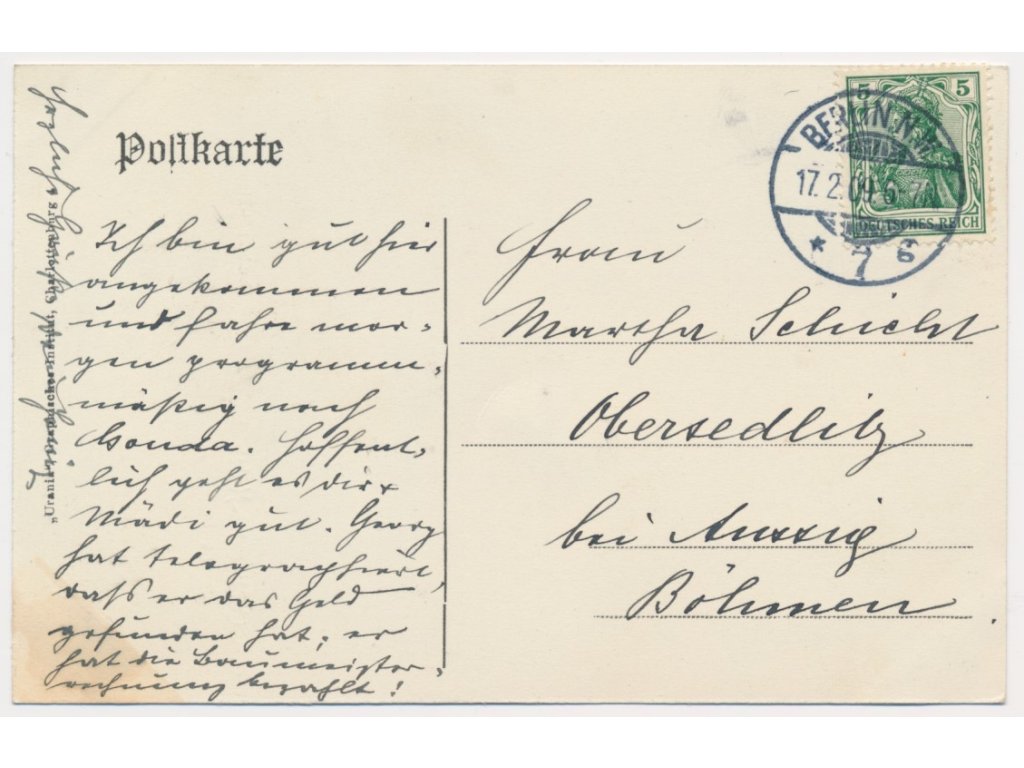 Postkarte
Ich bin gut hier
angekommen
und fahre mor-
gen programm-
mäßig nach
Gouda. Hoffent-
lich geht es dir +
Mädi gut. Georg
hat telegraphiert,
daß er das Geld
gefunden hat; er
hat die Baumeister-
rechnung bezahlt!
herzlichst Grüßt
„Urania" Graphisches Institut, Charlottenburg
5 5
DEUTSCHES REICH
BERLIN N.W.
17.2.09 6-7N
* 7 g
Frau
Martha Schicht
Obersedlitz
bei Aussig
Böhmen.